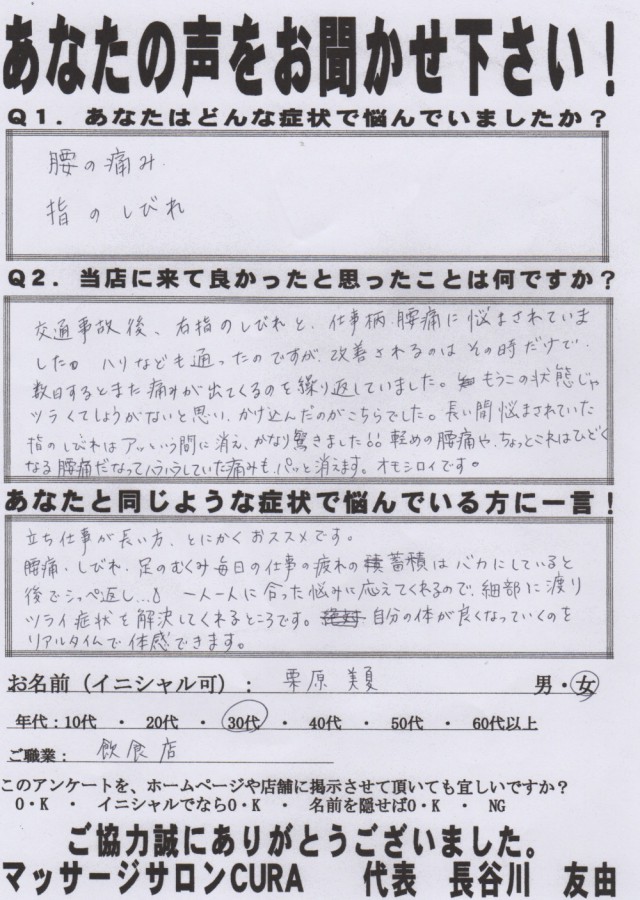 あなたの声をお聞かせ下さい！
Q1．あなたはどんな症状で悩んでいましたか？
腰の痛み.
指のしびれ
Q2．当店に来て良かったと思ったことは何ですか？
交通事故後、右指のしびれと、仕事柄、腰痛に悩まされていま
した。ハリなども通ったのですが、改善されるのはその時だけで、
数日するとまた痛みが出てくるのを繰り返していました。もうこの状態じゃ
ツラくてしょうがないと思い、かけ込んだのがこちらでした。長い間悩まされていた
指のしびれはアッという間に消え、かなり驚きました!! 軽めの腰痛や、ちょっとこれはひどく
なる腰痛だなってハラハラしていた痛みも、パッと消えます。オモシロイです。
あなたと同じような症状で悩んでいる方に一言！
立ち仕事が長い方、とにかくおススメです。
腰痛・しびれ・足のむくみ毎日の仕事の疲れの蓄積はバカにしていると
後でシッペ返し…!! 一人一人に合った悩みに応えてくれるので、細部に渡り
ツライ症状を解決してくれるところです。自分の体が良くなっていくのを
リアルタイムで体感できます。
お名前（イニシャル可）： 栗原 美夏 男・女
年代：10代 ・ 20代 ・ 30代 ・ 40代 ・ 50代 ・ 60代以上
ご職業： 飲食店
このアンケートを、ホームページや店舗に掲示させて頂いても宜しいですか？
O・K ・ イニシャルでならO・K ・ 名前を隠せばO・K ・ NG
ご協力誠にありがとうございました。
マッサージサロンCURA 代表 長谷川 友由